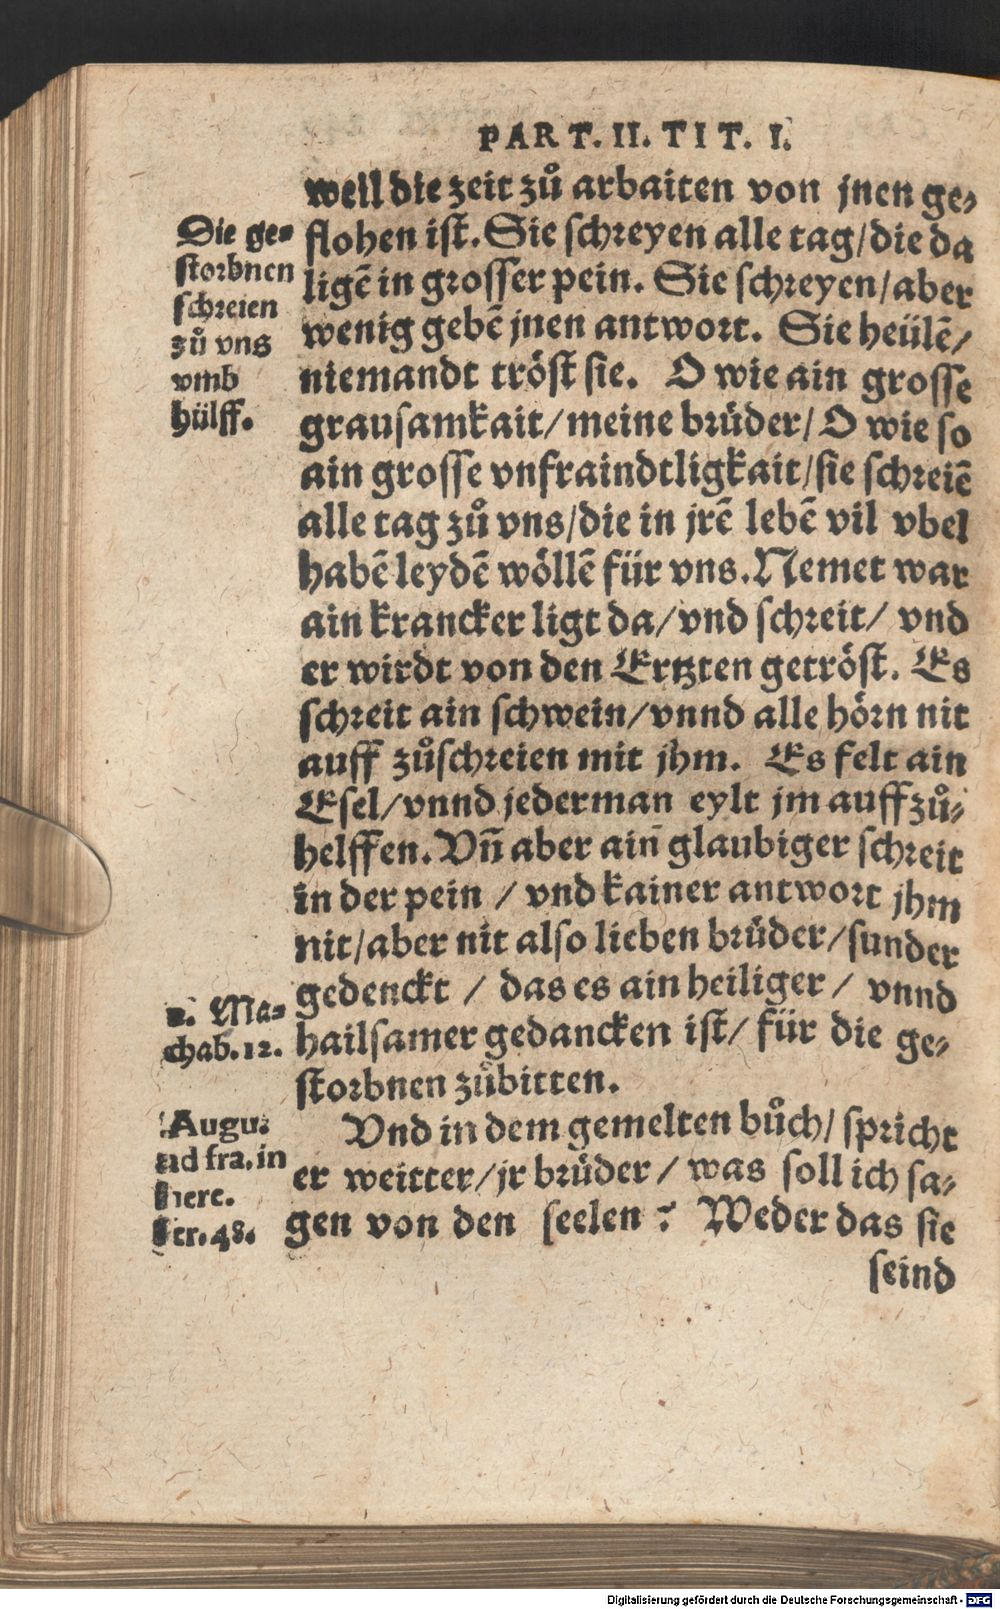 PART. II. TIT. I.
weil die zeit zů arbaiten von jnen ge-
flohen ist. Sie schreyen alle tag/die da
ligē in grosser pein. Sie schreyen/aber
wenig gebē jnen antwort. Sie heülē/
niemandt tröst sie. O wie ain grosse
grausamkait/meine brüder/O wie so
ain grosse vnfraindtligkait/sie schreiē
alle tag zů vns/die in jrē lebē vil vbel
habē leydē wöllē für vns. Nemet war
ain krancker ligt da/vnd schreit/ vnd
er wirdt von den Ertzten getröst. Es
schreit ain schwein/vnnd alle hörn nit
auff zůschreien mit jhm. Es felt ain
Esel/vnnd jederman eylt jm auffzů-
helffen. Vn̄ aber ain̄ glaubiger schreit
in der pein / vnd kainer antwort jhm
nit/aber nit also lieben brüder/sunder
gedenckt / das es ain heiliger/ vnnd
hailsamer gedancken ist/ für die ge-
storbnen zůbitten.
Vnd in dem gemelten bůch/ spricht
er weitter/jr brüder/ was soll ich sa-
gen von den seelen? Weder das sie
seind
Die ge-
storbnen
schreien
zů vns
vmb
hülff.
2. Ma-
chab. 12.
Augu.
ad fra. in
here.
ser. 48.
Digitalisierung gefördert durch die Deutsche Forschungsgemeinschaft - DFG